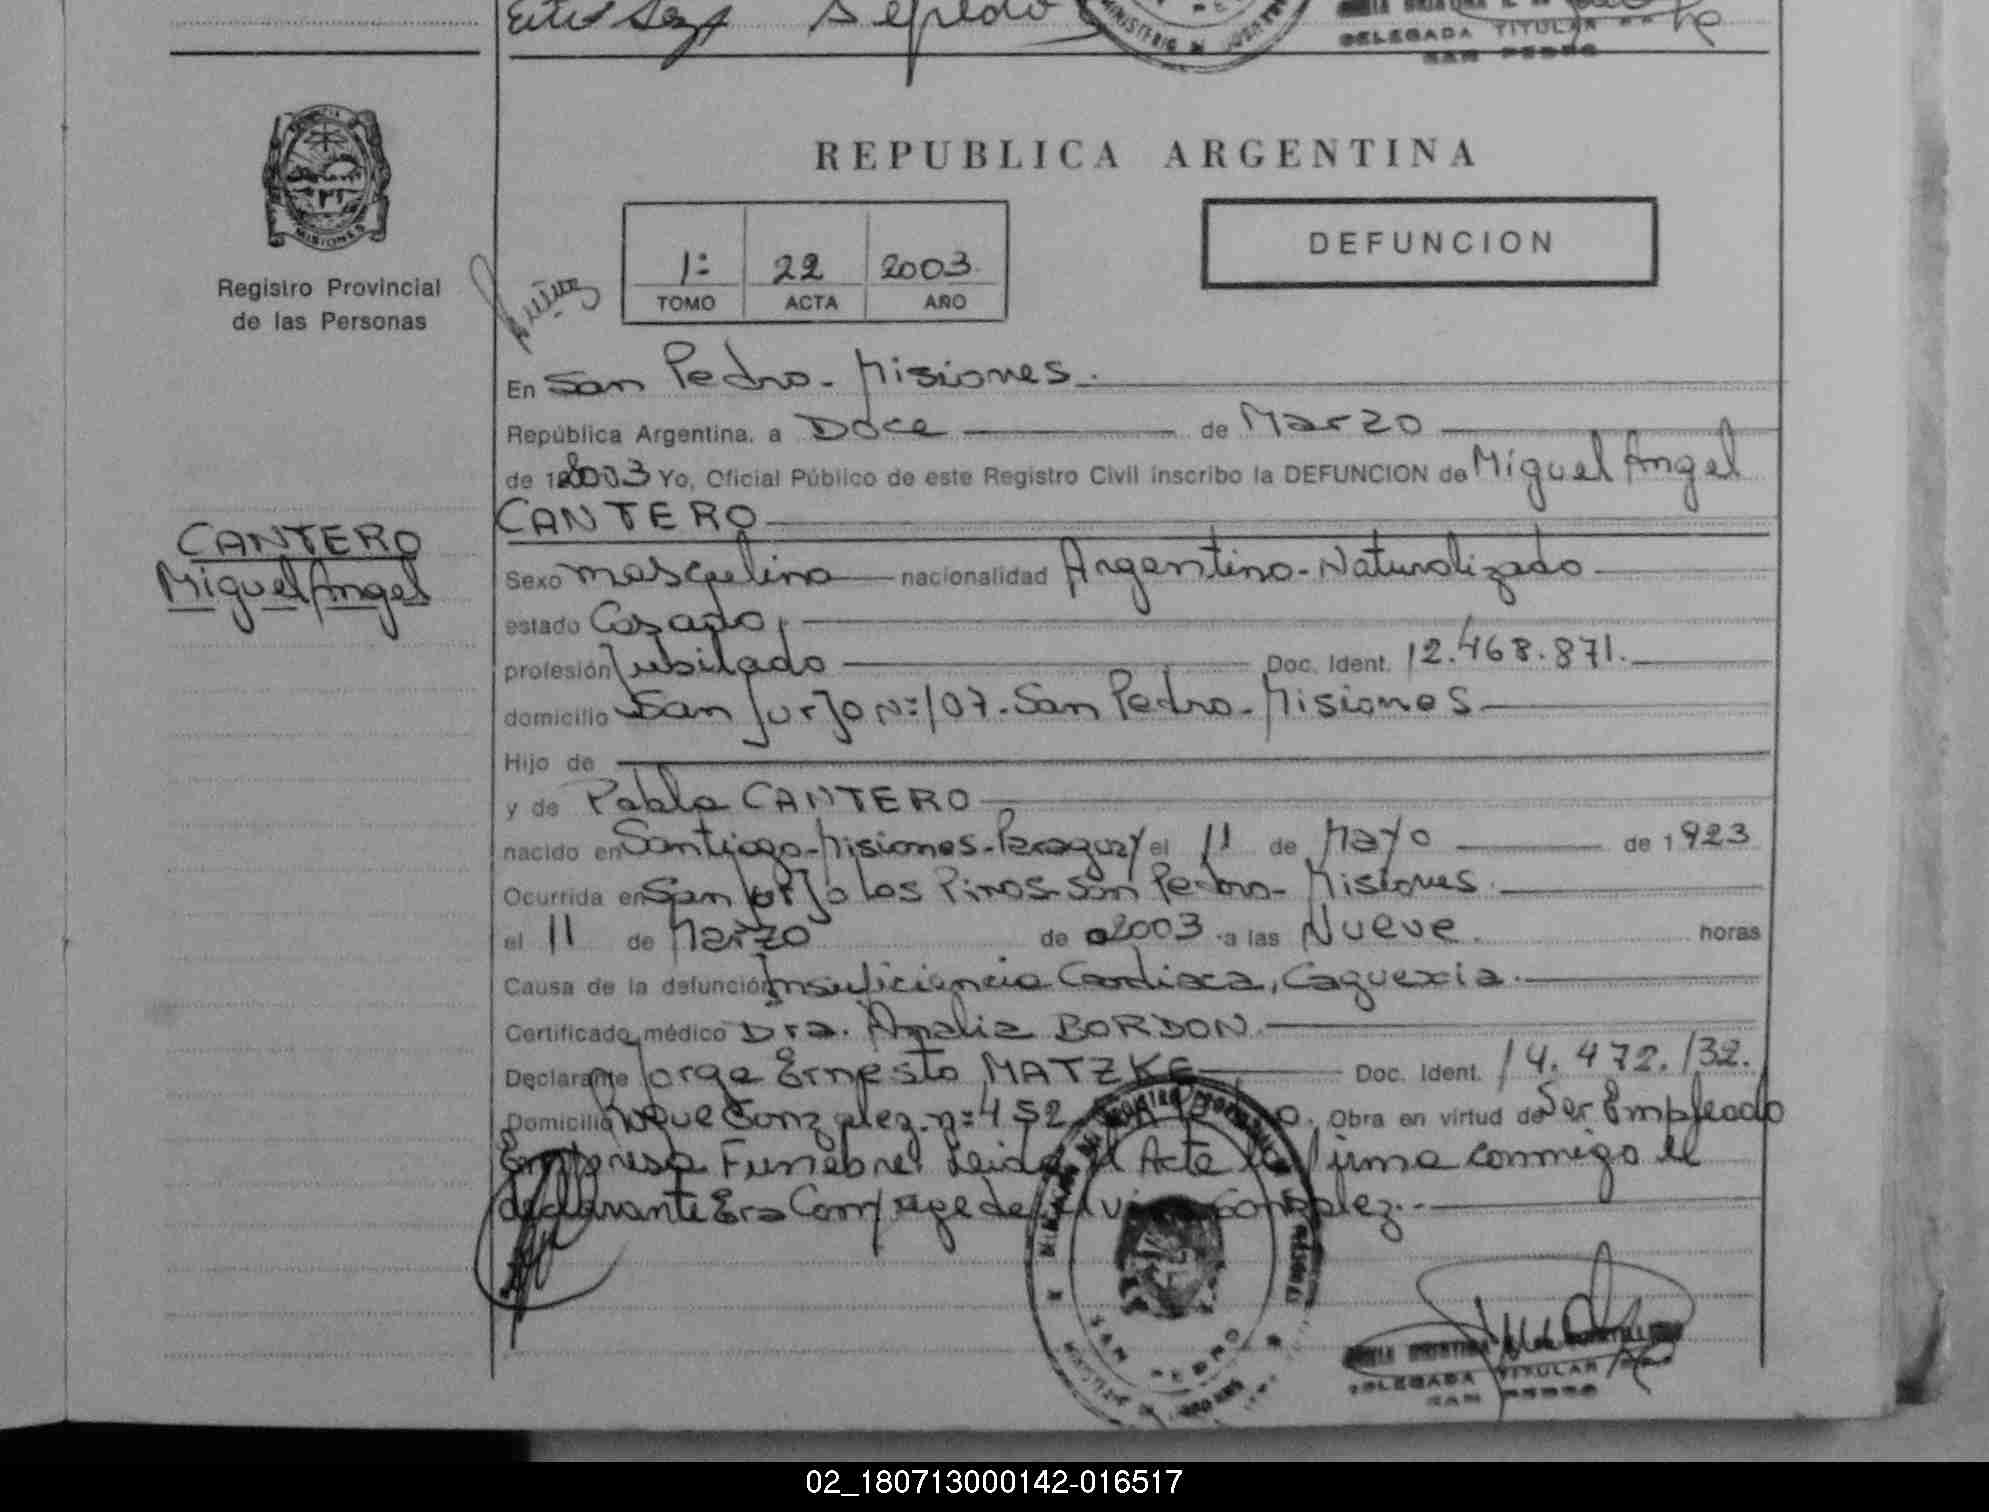 DELEGADA TITULAR
SAN PEDRO
PROVINCIA DE
MISIONES
REPUBLICA ARGENTINA
Registro Provincial
de las Personas
1º 22 2003
TOMO ACTA AÑO
DEFUNCION
En San Pedro - Misiones.
República Argentina, a Doce de Marzo
de 2003 Yo, Oficial Público de este Registro Civil inscribo la DEFUNCION de Miguel Angel
CANTERO
CANTERO
Miguel Angel
Sexo masculino nacionalidad Argentino-Naturalizado
estado Casado,
profesión Jubilado Doc. Ident. 12.468.871.
domicilio San Jorjo Nº 107. San Pedro - Misiones
Hijo de
y de Pabla CANTERO
nacido en Santiago-Misiones-Paraguay el 11 de Mayo de 1923
Ocurrida en San Jorjo los Pinos-San Pedro - Misiones.
el 11 de Marzo de 2003 a las Nueve. horas
Causa de la defunción Insuficiencia Cardiaca, Caquexia.
Certificado médico Dra. Amalia BORDON.
Declarante Jorge Ernesto MATZKE Doc. Ident. 14.472.132.
Domicilio Roque Gonzalez. nº 452 Obra en virtud de Ser Empleado
Empresa Funebre. Leida el Acta la firma conmigo el
declarante Era Conyuge de Gonzalez.
SAN PEDRO
DELEGADA TITULAR
SAN PEDRO
02_180713000142-016517